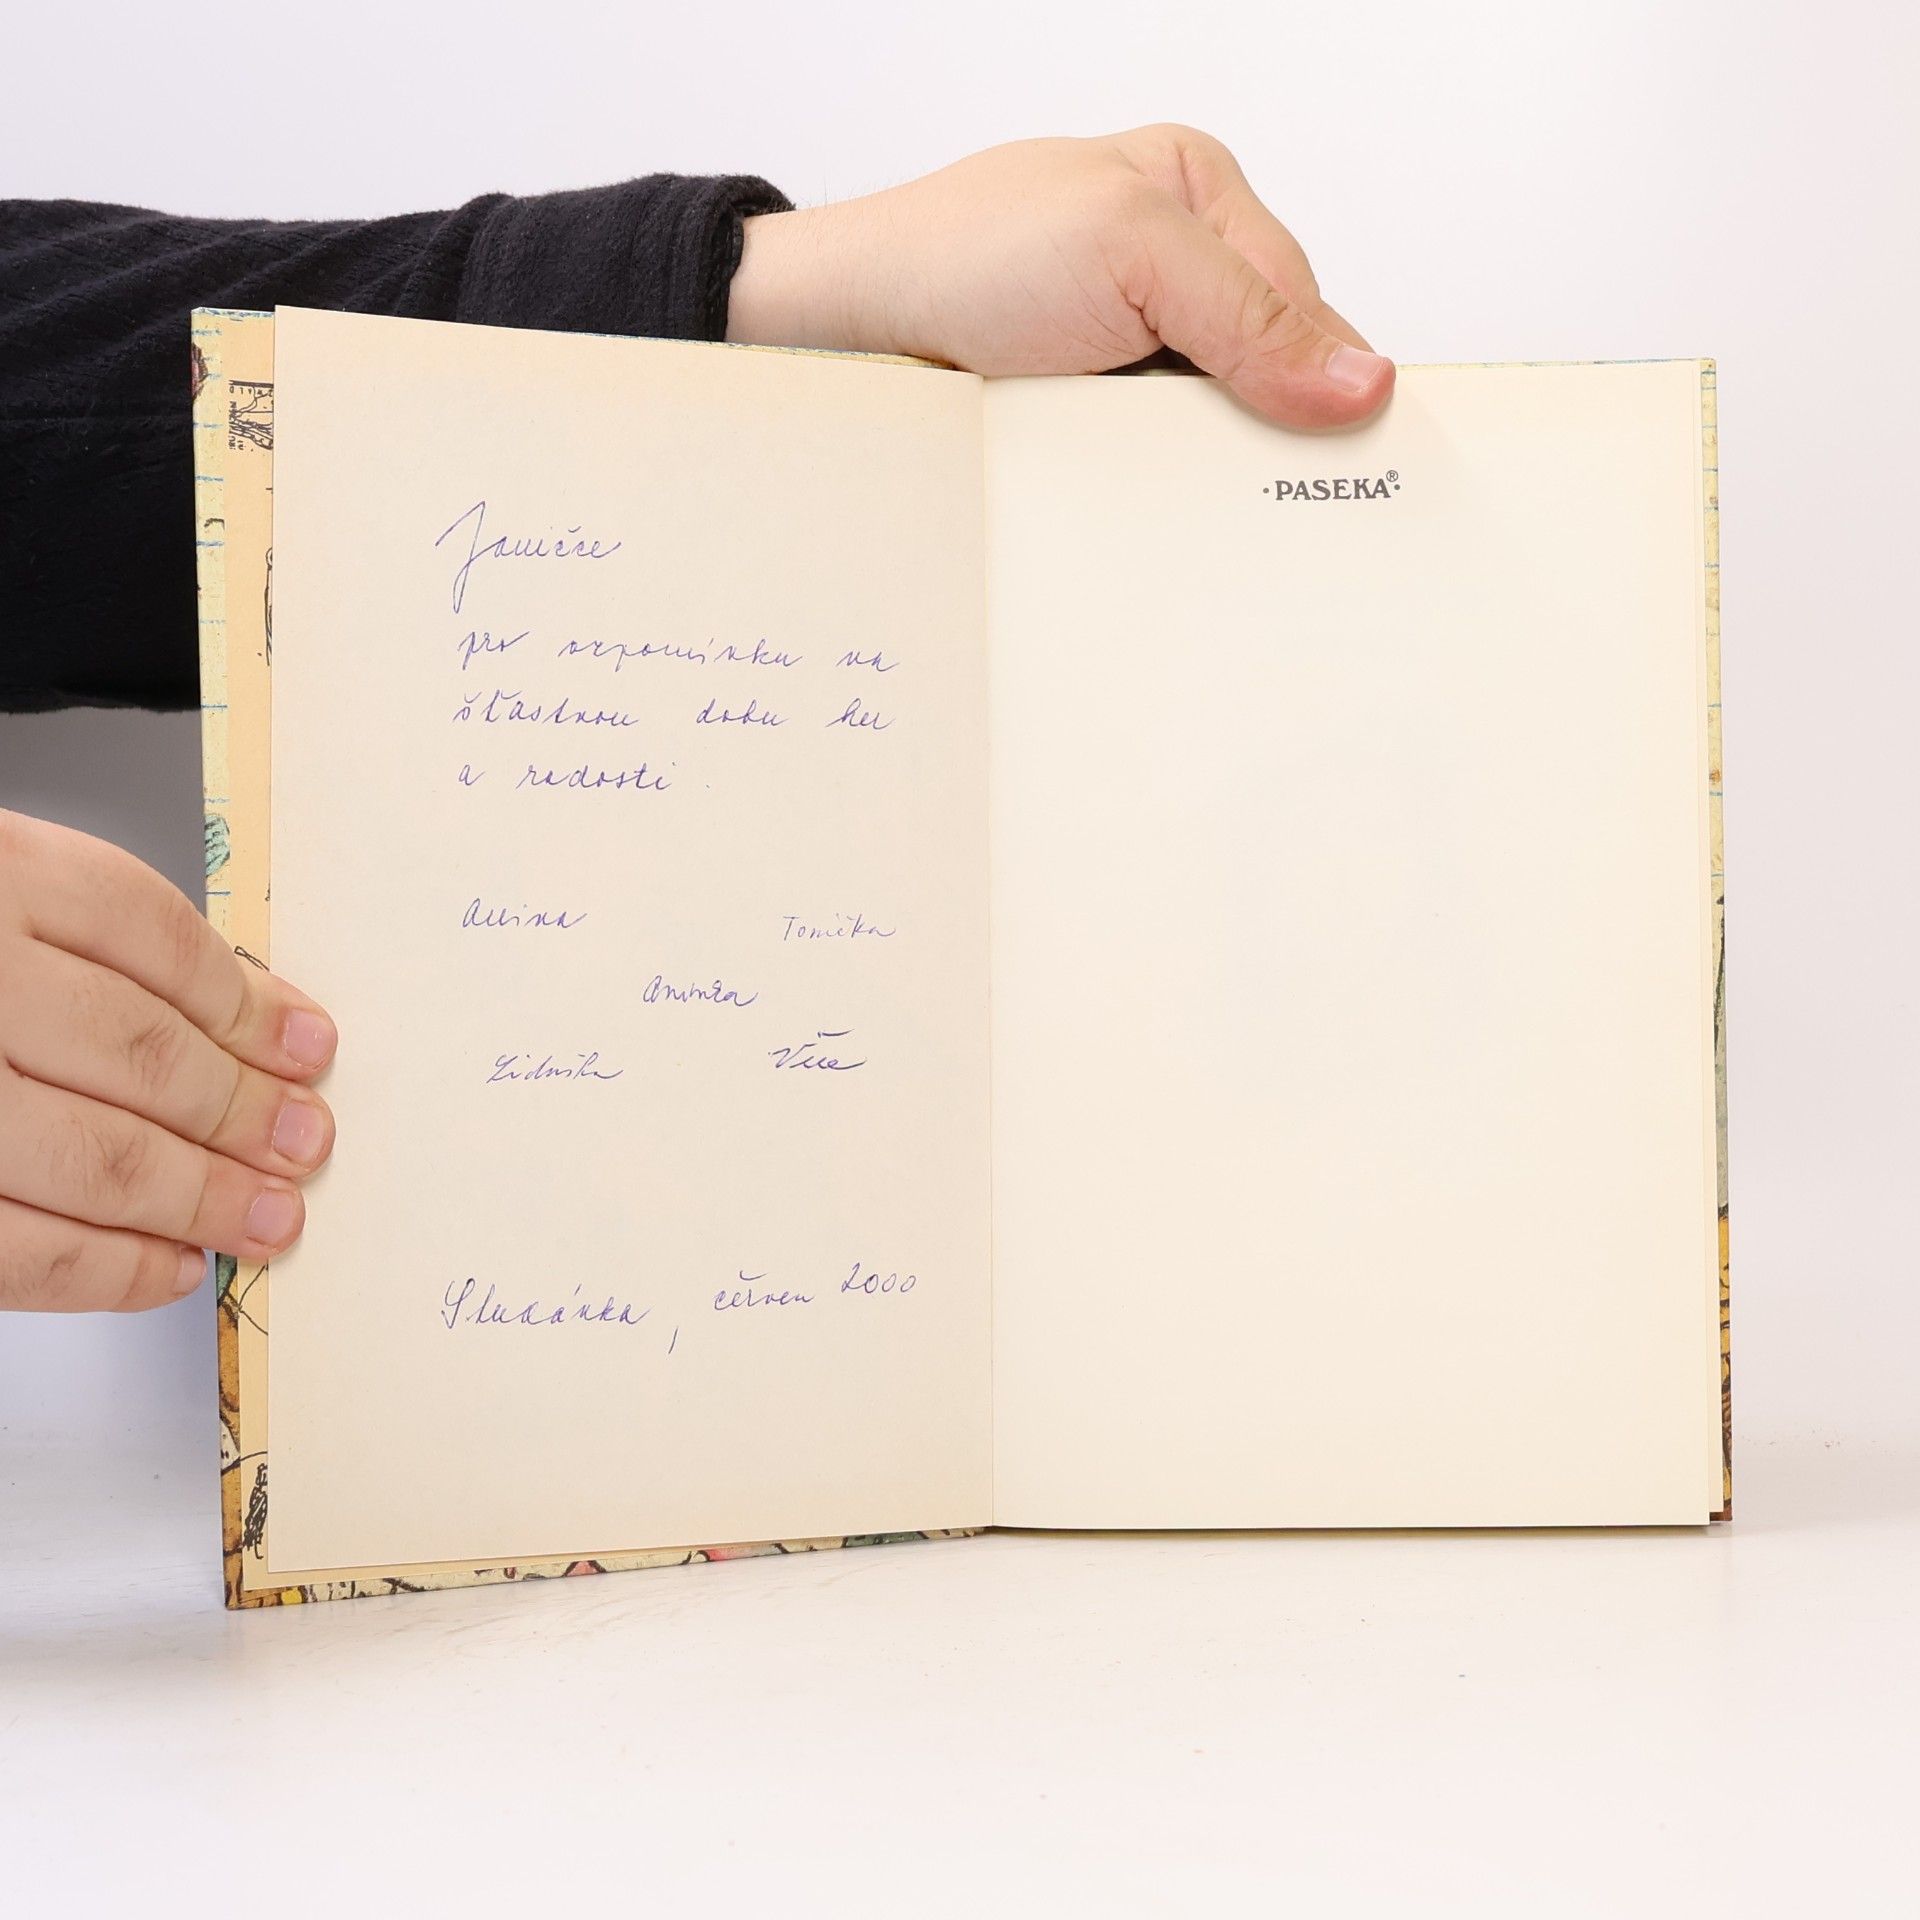 Janičce
pro vzpomínku na
šťastnou dobu her
a radosti.
Tonička
Aninka
Liduška
Studánka, červen 2000
·PASEKA®·